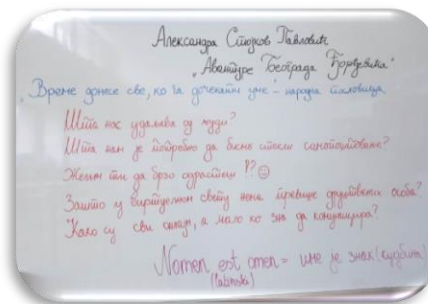 Александра Стојков Павловић
„Авантуре Београда Ђорђевића"
„Време донесе све, ко га дочекати уме" - народна пословица
Шта нас удаљава од људи?
Шта нам је потребно да бисмо стекли самопоштовање?
Желиш ли да брзо одрастеш?
Зашто у виртуелном свету нема превише друштвених особа?
Како су сви онлајн, а мало ко зна да комуницира?
Nomen est omen = име је знак (судбина)
(latinski)